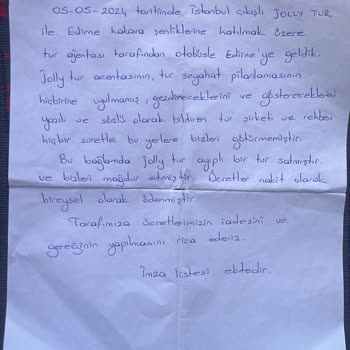 05-05-2024 tarihinde İstanbul çıkışlı JOLLY TUR
ile Edirne kakava şenliklerine katılmak üzere
tur ajentası tarafından otobüsle Edirne'ye geldik.
Jolly tur acentasının, tur seyahat pilanlamasının
hiçbirine uyılmamış, gezdireceklerini ve göstereceklerini
yazılı ve sözlü olarak bildiren tur şirketi ve rehberi
hiçbir suretle bu yerlere bizleri götürmemiştir.
Bu bağlamda jolly tur ayıplı bir tur satmıştır
ve bizleri mağdur etmiştir. Ücretler nakit olarak
bireysel olarak ödenmiştir
Tarafımıza ücretlerimizin iadesini ve
gereğinin yapılmasını rica ederiz.
İmza listesi ektedir.